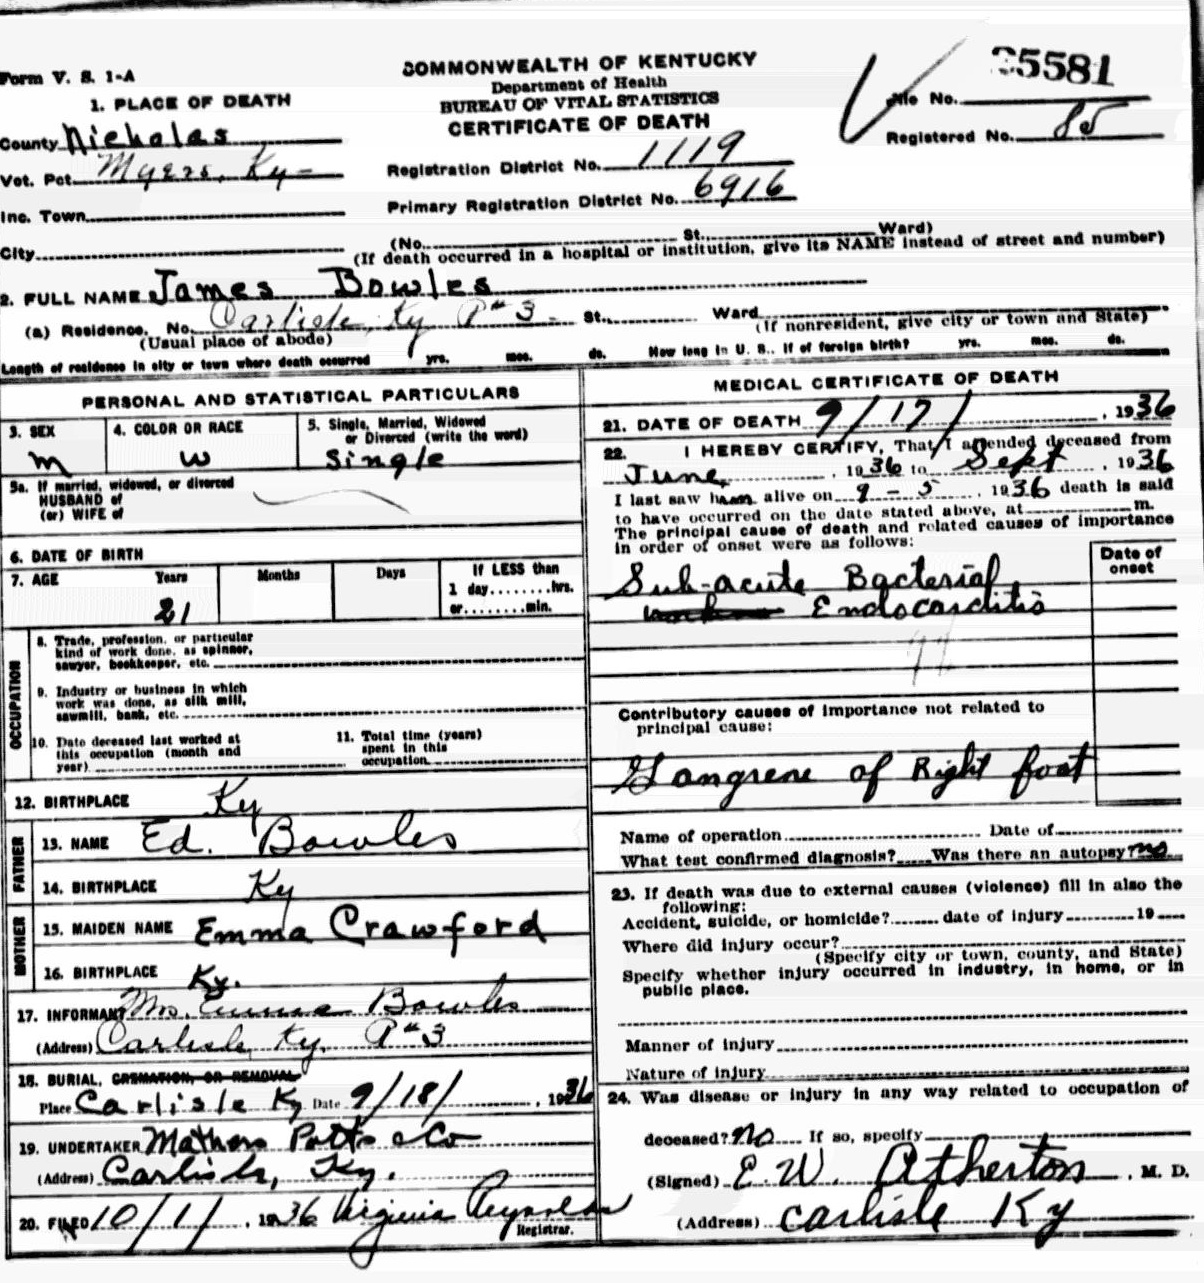 Form V. S. 1-A
COMMONWEALTH OF KENTUCKY
Department of Health
BUREAU OF VITAL STATISTICS
CERTIFICATE OF DEATH
File No. 35581
Registered No. 85
1. PLACE OF DEATH
County Nicholas
Vot. Pct. Myers, Ky-
Inc. Town
City
Registration District No. 1119
Primary Registration District No. 6916
(No. St. Ward)
(If death occurred in a hospital or institution, give its NAME instead of street and number)
2. FULL NAME James Bowles
(a) Residence. No. Carlisle, Ky R#3 St., Ward
(Usual place of abode) (If nonresident, give city or town and State)
Length of residence in city or town where death occurred yrs. mos. ds. How long in U. S., if of foreign birth? yrs. mos. ds.
PERSONAL AND STATISTICAL PARTICULARS
3. SEX
m
4. COLOR OR RACE
w
5. Single, Married, Widowed
or Divorced (write the word)
Single
5a. If married, widowed, or divorced
HUSBAND of
(or) WIFE of
6. DATE OF BIRTH
7. AGE Years Months Days If LESS than
1 day........hrs.
21 or........min.
OCCUPATION
8. Trade, profession, or particular
kind of work done, as spinner,
sawyer, bookkeeper, etc.
9. Industry or business in which
work was done, as silk mill,
sawmill, bank, etc.
10. Date deceased last worked at
this occupation (month and
year)
11. Total time (years)
spent in this
occupation
12. BIRTHPLACE Ky
FATHER
13. NAME Ed. Bowles
14. BIRTHPLACE Ky
MOTHER
15. MAIDEN NAME Emma Crawford
16. BIRTHPLACE Ky.
17. INFORMANT Mrs. Emma Bowles
(Address) Carlisle, Ky. R#3
18. BURIAL, CREMATION, OR REMOVAL
Place Carlisle Ky Date 9/18/, 1936
19. UNDERTAKER Mathers Potts & Co
(Address) Carlisle, Ky.
20. FILED 10/1/, 1936 Virginia Reynolds
Registrar.
MEDICAL CERTIFICATE OF DEATH
21. DATE OF DEATH 9/17/, 1936
22. I HEREBY CERTIFY, That I attended deceased from
June, 1936 to Sept, 1936
I last saw him alive on 9-5, 1936 death is said
to have occurred on the date stated above, at m.
The principal cause of death and related causes of importance
in order of onset were as follows:
Date of
onset
Sub-acute Bacterial
Endocarditis
Contributory causes of importance not related to
principal cause:
Gangrene of Right foot
Name of operation Date of
What test confirmed diagnosis? Was there an autopsy no
23. If death was due to external causes (violence) fill in also the
following:
Accident, suicide, or homicide? date of injury 19
Where did injury occur?
(Specify city or town, county, and State)
Specify whether injury occurred in industry, in home, or in
public place.
Manner of injury
Nature of injury
24. Was disease or injury in any way related to occupation of
deceased? no If so, specify
(Signed) E. W. Atherton, M. D.
(Address) Carlisle Ky